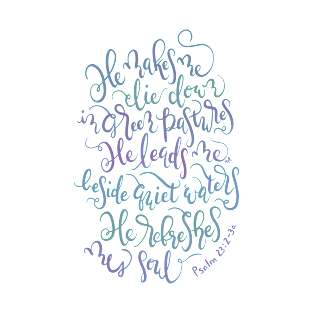 He makes me
lie down
in green pastures
He leads me
beside quiet waters
He refreshes
my soul
Psalm 23:2-3a